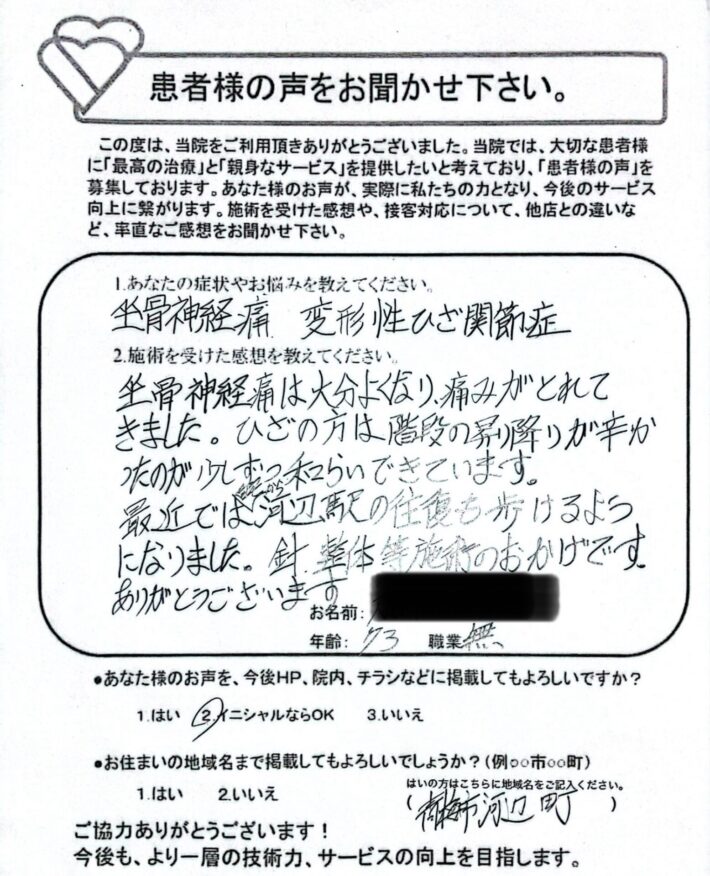 患者様の声をお聞かせ下さい。
この度は、当院をご利用頂きありがとうございました。当院では、大切な患者様
に「最高の治療」と「親身なサービス」を提供したいと考えており、「患者様の声」を
募集しております。あなた様のお声が、実際に私たちの力となり、今後のサービス
向上に繋がります。施術を受けた感想や、接客対応について、他店との違いな
ど、率直なご感想をお聞かせ下さい。
1.あなたの症状やお悩みを教えてください。
坐骨神経痛 変形性ひざ関節症
2.施術を受けた感想を教えてください。
坐骨神経痛は大分よくなり、痛みがとれて
きました。ひざの方は階段の昇り降りが辛か
ったのが少しずつ和らいできています。
最近では河辺駅の往復も歩けるよう
になりました。針、整体等施術のおかげです
ありがとうございます
お名前:
年齢: 73 職業 無
●あなた様のお声を、今後HP、院内、チラシなどに掲載してもよろしいですか?
1.はい 2.イニシャルならOK 3.いいえ
●お住まいの地域名まで掲載してもよろしいでしょうか?(例○○市○○町)
はいの方はこちらに地域名をご記入ください。
1.はい 2.いいえ (青梅市河辺町)
ご協力ありがとうございます!
今後も、より一層の技術力、サービスの向上を目指します。